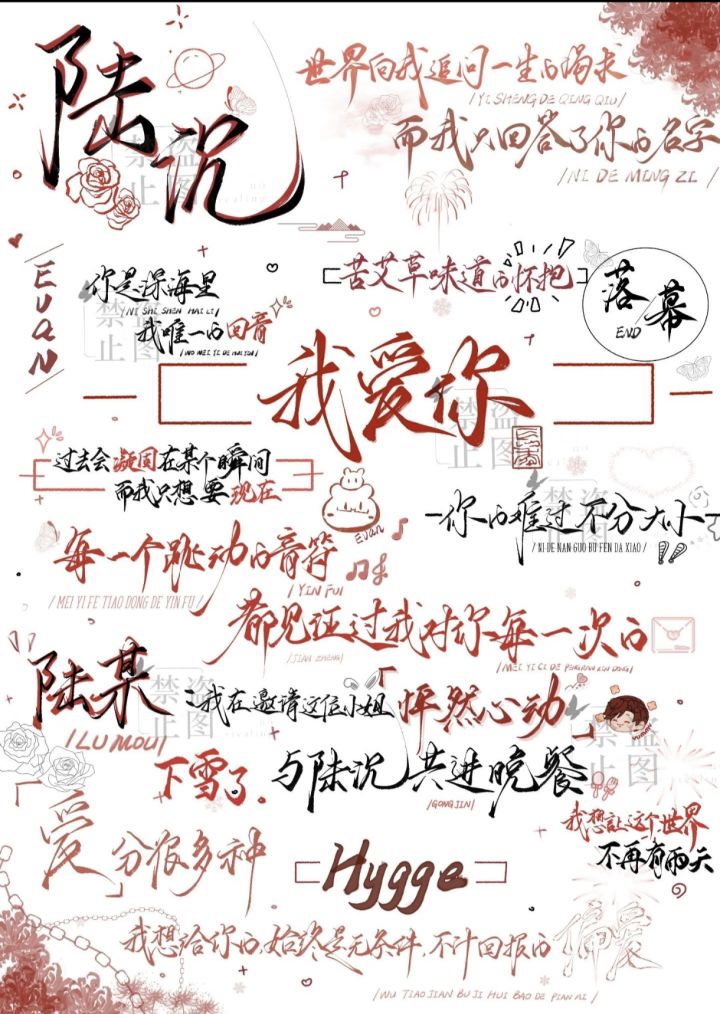 陆沉
世界向我追问一生的渴求
/YI SHENG DE QING QIU/
而我只回答了你的名字
/NI DE MING ZI/
EVAN
你是深海里
/NI SHI SHEN HAI LI/
我唯一的回音
/WO WEI YI DE HUI YIN/
苦艾草味道的怀抱
落幕
END
我爱你
过去会凝固在某个瞬间
而我只想要现在
Evan
你的难过不分大小
/NI DE NAN GUO BU FEN DA XIAO/
每一个跳动的音符
/MEI YI FE TIAO DONG DE YIN FU/
/YIN FU/
都见证过我对你每一次的
/JIAN ZHENG/
陆某
/LU MOU/
:我在邀请这位小姐
「怦然心动」
下雪了.
与陆沉共进晚餐
/GONGJIN/
我想让这个世界
不再有雨天
「爱」分很多种
Hygge
我想给你的,始终是无条件,不计回报的偏爱
/WU TIAO JIAN BU JI HUI BAO DE PIAN AI/
禁止盗图
禁止盗图
禁止盗图
禁止盗图
禁止盗图
禁止盗图